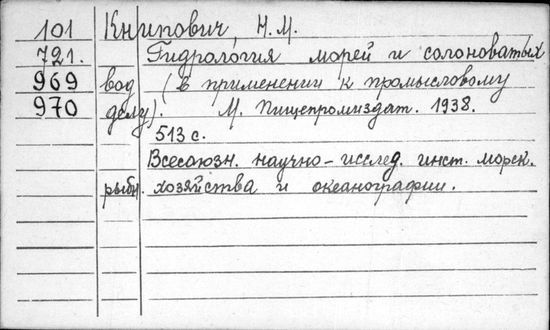 101 Книпович, Н.М.
721. Гидрология морей и солоноватых
969 вод (в применении к промысловому
970 делу). М. Пищепромиздат. 1938.
513 с.
Всесоюзн. научно-исслед. инст. морск.
рыбн. хозяйства и океанографии.